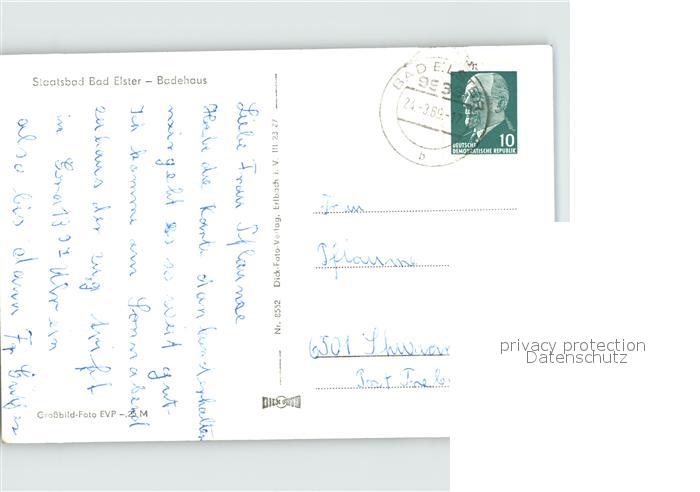 Staatsbad Bad Elster – Badehaus
Liebe Frau Pflaume
Habe die Karte dankend erhalten
mir geht es so weit gut.
Ich komme am Sonnabend
zuhaus der Zug trifft
in Gera 13 97 Uhr ein
also bis dann Fr.
Großbild-Foto EVP –,25 M
Nr. 8552 Dick-Foto-Verlag, Erlbach i. V. III 23 27
DICK FOTO
BAD ELSTER
993
24.-3.69.-17
b
10
DEUTSCHE
DEMOKRATISCHE REPUBLIK
Frau
Pflaume
6501
Post
privacy protection
Datenschutz